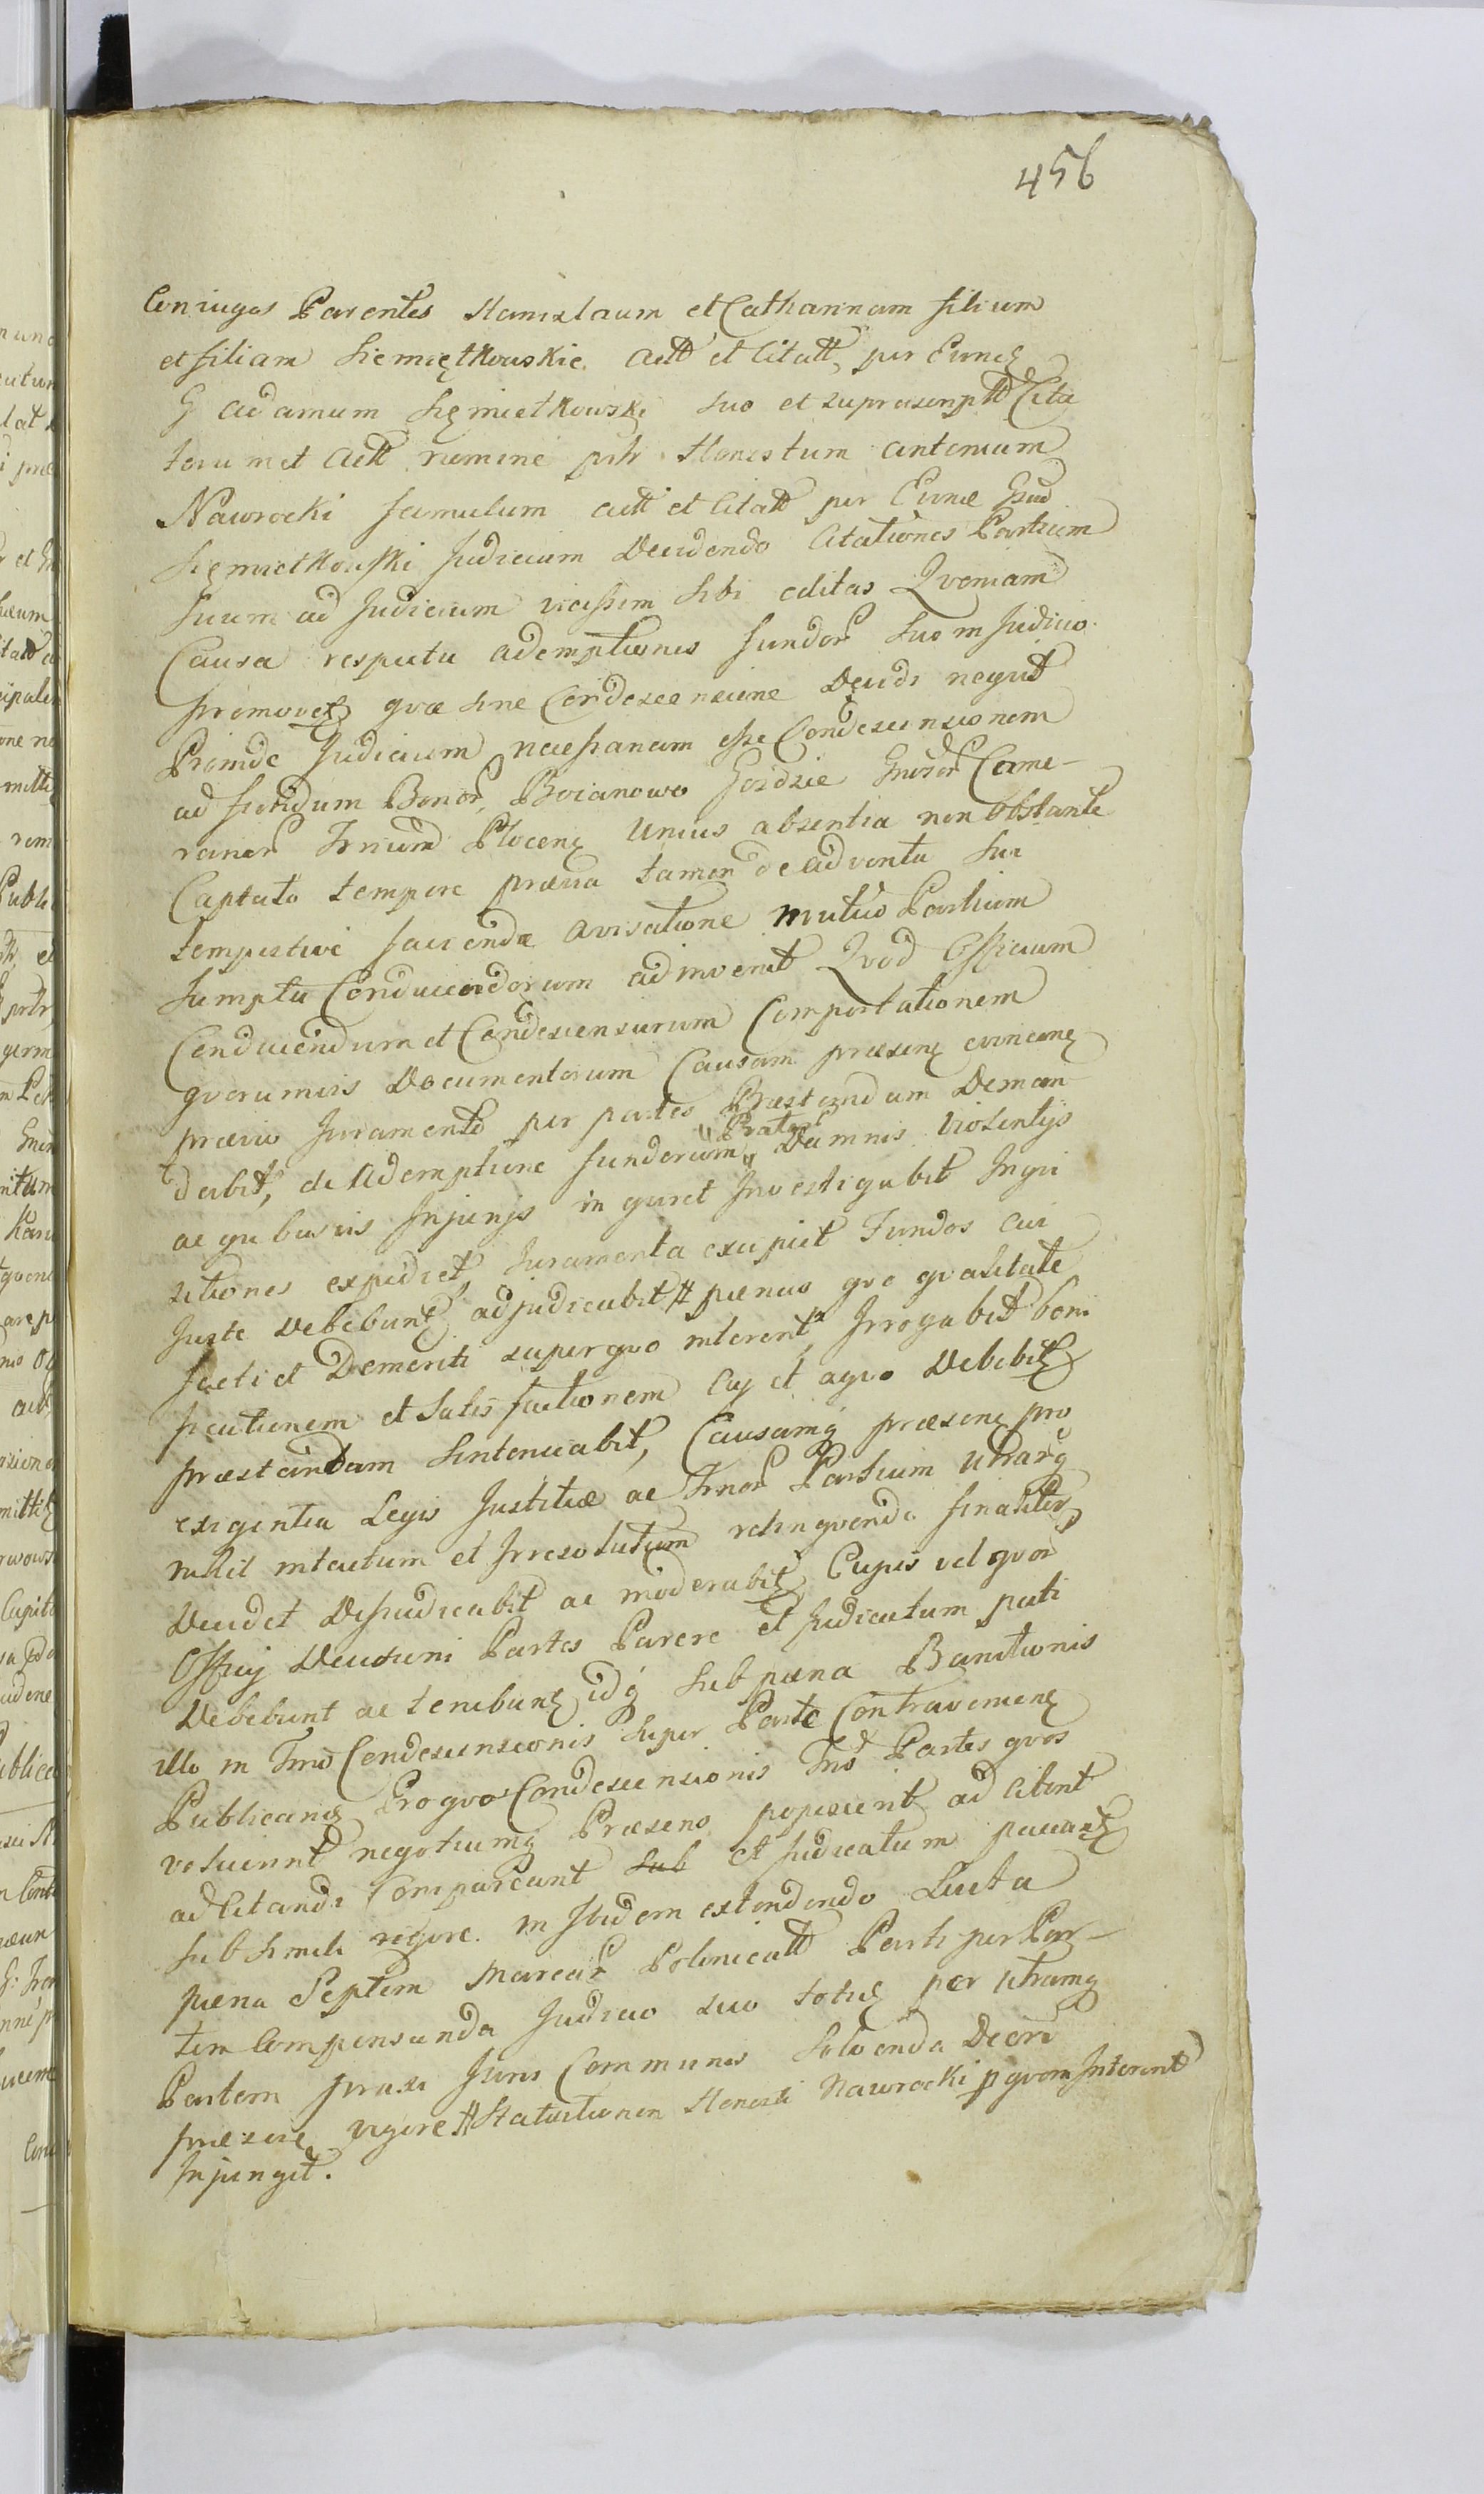 456
Coniuges Parentes Stanislaum et Catharinam filium
et filiam Siemiętkowskie Actt et Citatt, per Eund
G Adamum Sięmietkowski suo et suprascriptt Cita
torum et Actt nomine prtr Honestum Antonium
Nawrocki famulum actt et Citatt per Eund Gsud
Sięmietkowski Judicium Decidendo Citationes Partium
Suum ad Judicium vicissim sibi editas Qvoniam
Causa respectu ademptionis fundor Suo in Judicio
promovetz qvæ sine Condescensione Decidi neqvit
Proinde Judicium necessariam esse Condescensionem
ad fundum Bonor, Boianowo Gozdzie Gnrsor Came-
rarior Trium Plocenz Unius absentia non obstante
Captato tempore prævia tamen de adventu sui
tempestive facienda avisatione mutuo Partium
Sumptu Conducendorum adinvenit Qvod Officium
Conducendum et Condescensurum Comportationem
qvorumvis Documentorum Causam præsenz evincenz
prævio Juramento per partes Præstandum Deman
dabit, de Ademptione fundorum Prator Damnis Violentijs
ac qvibusvis Injurijs inqviret Investigabit Inqvi
sitiones expediet, Juramenta excipiet Fundos cui
Juste Debebuntz adjudicabit # pænas qvo qvalitate
facti et Demeriti super qvo intererit, Irrogabit boni
ficationem et Satisfactionem Cuj et a qvo Debebitz
præstandam Sentenciabit, Causamq præsenz pro
exigentia Legis Justitiæ ac Trnor Partium Utrarq
nihil intactum et Irresolutum relinqvendo finaliter
Decidet Dejudicabit ac moderabitz Cujus vel qvor
Officij Decisioni Partes Parere et Judicatum pati
Debebunt ac tenebunz idq sub pæna Banitionis
illo in Tmno Condescensionis super Parte Contravenienz
Publicandz Pro qvo Condescensionis Tno Partes qvos
voluerint negotiumq Præsens poposcerit ad Citent
ad Citandi Compareant sub et Judicatum patianz
sub simili rigore in ibidem extendendo Lucta
pæna Septem Marcar Polonicatt Parti per Par-
tem Compensanda Judicio suo totidz per utramq
Partem praxi Juris Communes Solvenda Decre
præsenz vigore # Statuitionem Honesti Nawrocki p qvem Intererit
Injungit.